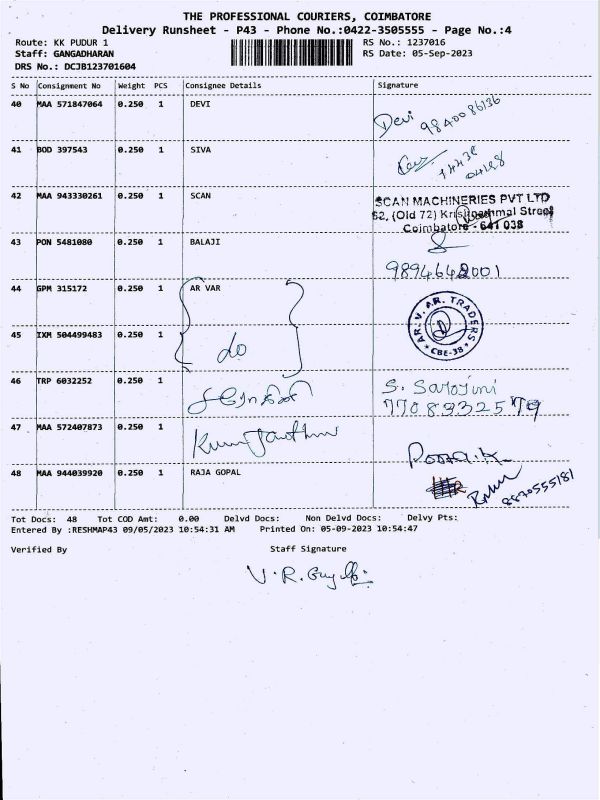 THE PROFESSIONAL COURIERS, COIMBATORE
Delivery Runsheet - P43 - Phone No.:0422-3505555 - Page No.:4
Route: KK PUDUR 1 RS No.: 1237016
Staff: GANGADHARAN RS Date: 05-Sep-2023
DRS No.: DCJB123701604
S No Consignment No Weight PCS Consignee Details Signature
40 MAA 571847064 0.250 1 DEVI Devi 9840086136
41 BOD 397543 0.250 1 SIVA
42 MAA 943330261 0.250 1 SCAN SCAN MACHINERIES PVT LTD
62, (Old 72) Street
Coimbatore - 641 038
43 PON 5481080 0.250 1 BALAJI
9894642001
44 GPM 315172 0.250 1 AR VAR AR. V. AR. TRADERS
* CBE-38 *
45 IXM 504499483 0.250 1 do
46 TRP 6032252 0.250 1 சரோஜினி S. Sarojini
47 MAA 572407873 0.250 1
48 MAA 944039920 0.250 1 RAJA GOPAL 8870555181
Tot Docs: 48 Tot COD Amt: 0.00 Delvd Docs: Non Delvd Docs: Delvy Pts:
Entered By :RESHMAP43 09/05/2023 10:54:31 AM Printed On: 05-09-2023 10:54:47
Verified By Staff Signature